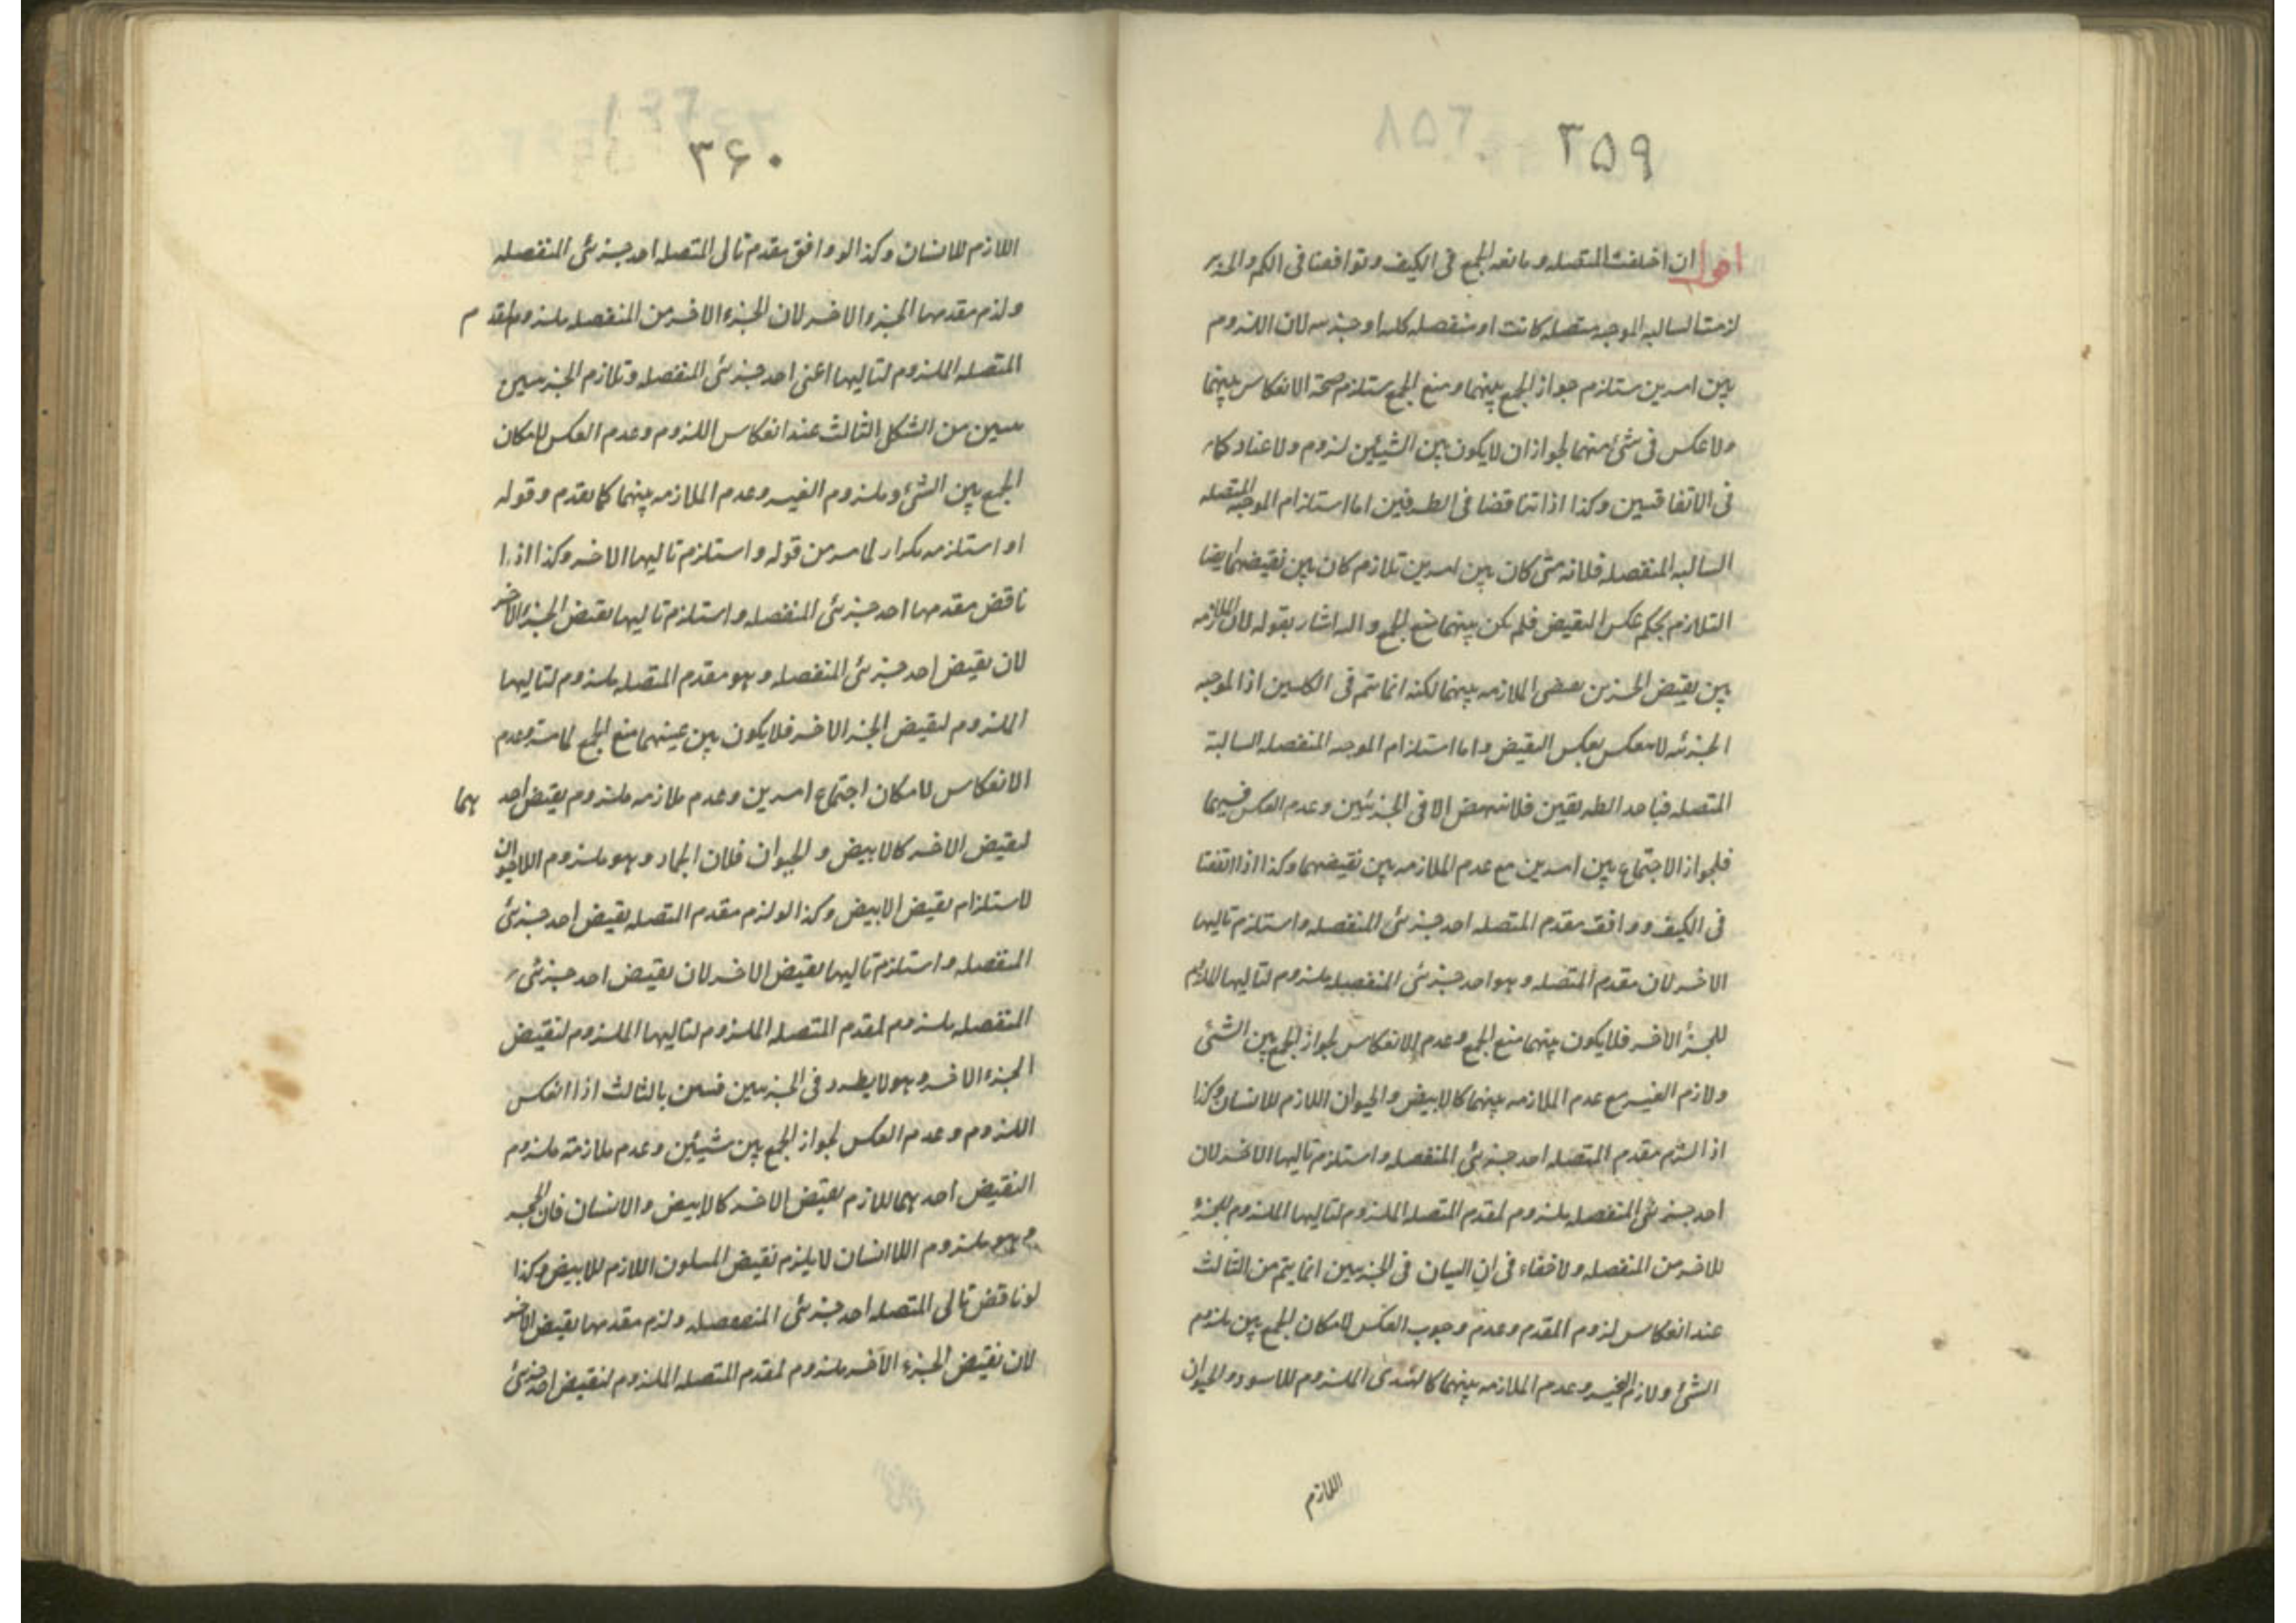 ٣٥٩
اقول ان اختلفت المتصله و مانعه الجمع فى الكيف و توافقتا فى الكم و الجزئين
لزمت السالبه الموجبه متصله كانت او منفصله كليه او جزئيه لان اللزوم
بين امرين يستلزم جواز الجمع بينهما و منع الجمع يستلزم صحة الانفكاك بينهما
ولا عكس فى شئ منهما لجواز ان لا يكون بين الشيئين لزوم و لا عناد كما
فى الاتفاقيين وكذا اذا تناقضا فى الطرفين اما استلزام الموجبه المتصله
السالبه المنفصله فلانه متى كان بين امرين تلازم كان بين نقيضهما ايضا
التلازم بحكم عكس النقيض فلم يكن بينهما منع الجمع و اليه اشار بقوله لان الملازمه
بين نقيض الجزئين يقتضى الملازمه بينهما لكنه انما يتم فى الكليتين اذ الموجبه
الجزئيه لا تنعكس بعكس النقيض و اما استلزام الموجبه المنفصله السالبة
المتصله فباحد الطريقين فلا ينهض الا فى الجزئيتين و عدم العكس فيهما
فلجواز الاجتماع بين امرين مع عدم الملازمه بين نقيضهما وكذا اذا اتفقتا
فى الكيف و وافقت مقدم المتصله احد جزئى المنفصله و استلزم تاليها
الاخر لان مقدم المتصله و هو احد جزئى المنفصله ملزوم لتاليها اللازم
للجزء الاخر فلا يكون بينهما منع الجمع و عدم الانعكاس لجواز الجمع بين الشئ
و لازم الغير مع عدم الملازمه بينهما كالابيض و الحيوان اللازم للانسان وكذا
اذا لزم مقدم المتصله احد جزئى المنفصله و استلزم تاليها الاخر لان
احد جزئى المنفصله ملزوم لمقدم المتصله الملزوم لتاليها الملزوم للجزء
للاخر من المنفصله ولا خفاء فى ان البيان فى الجزئيين انما يتم من الثالث
عند انعكاس لزوم المقدم و عدم وجوب العكس لامكان الجمع بين ملزوم
الشئ و لازم الغير و عدم الملازمه بينهما الملزوم للاسود و الحيوان
اللازم
٣۶٠
اللازم للانسان وكذا لو وافق مقدم تالى المتصله احد جزئى المنفصله
و لزم مقدمها الجزء الاخر لان الجزء الاخر من المنفصله ملزوم لمقدم
المتصله الملزوم لتاليها اعنى احد جزئى المنفصله و تلازم الجزئيين
يتبين من الشكل الثالث عند انعكاس اللزوم و عدم العكس لامكان
الجمع بين الشئ و ملزوم الغير و عدم الملازمه بينهما كما تقدم و قوله
او استلزمه تكرار لما مر من قوله و استلزم تاليها الاخر وكذا اذا
ناقض مقدمها احد جزئى المنفصله و استلزم تاليها نقيض الجزء الاخر
لان نقيض احد جزئى المنفصله و هو مقدم المتصله ملزوم لتاليها
الملزوم لنقيض الجزء الاخر فلا يكون بين عينهما منع الجمع لما مر و عدم
الانعكاس لامكان اجتماع امرين و عدم ملازمه ملزوم نقيض احدهما
لنقيض الاخر كالابيض و الحيوان فلان الجماد و هو ملزوم اللاحيوان
لاستلزام نقيض الابيض وكذا لو لزم مقدم المتصله نقيض احد جزئى
المنفصله و استلزم تاليها نقيض الاخر لان نقيض احد جزئى
المنفصله ملزوم لمقدم المتصله الملزوم لتاليها الملزوم لنقيض
الجزء الاخر و هو لا يطرد فى الجزئيين فتبين بالثالث اذا انعكس
اللزوم و عدم العكس لجواز الجمع بين شيئين و عدم ملازمة ملزوم
النقيض احدهما للازم نقيض الاخر كالابيض و الانسان فان الحجر
و هو ملزوم اللاانسان لا يلزم نقيض الملون اللازم للابيض وكذا
لو ناقض تالى المتصله احد جزئى المنفصله و لزم مقدمها نقيض الاخر
لان نقيض الجزء الاخر ملزوم لمقدم المتصله الملزوم لنقيض احد جزئى